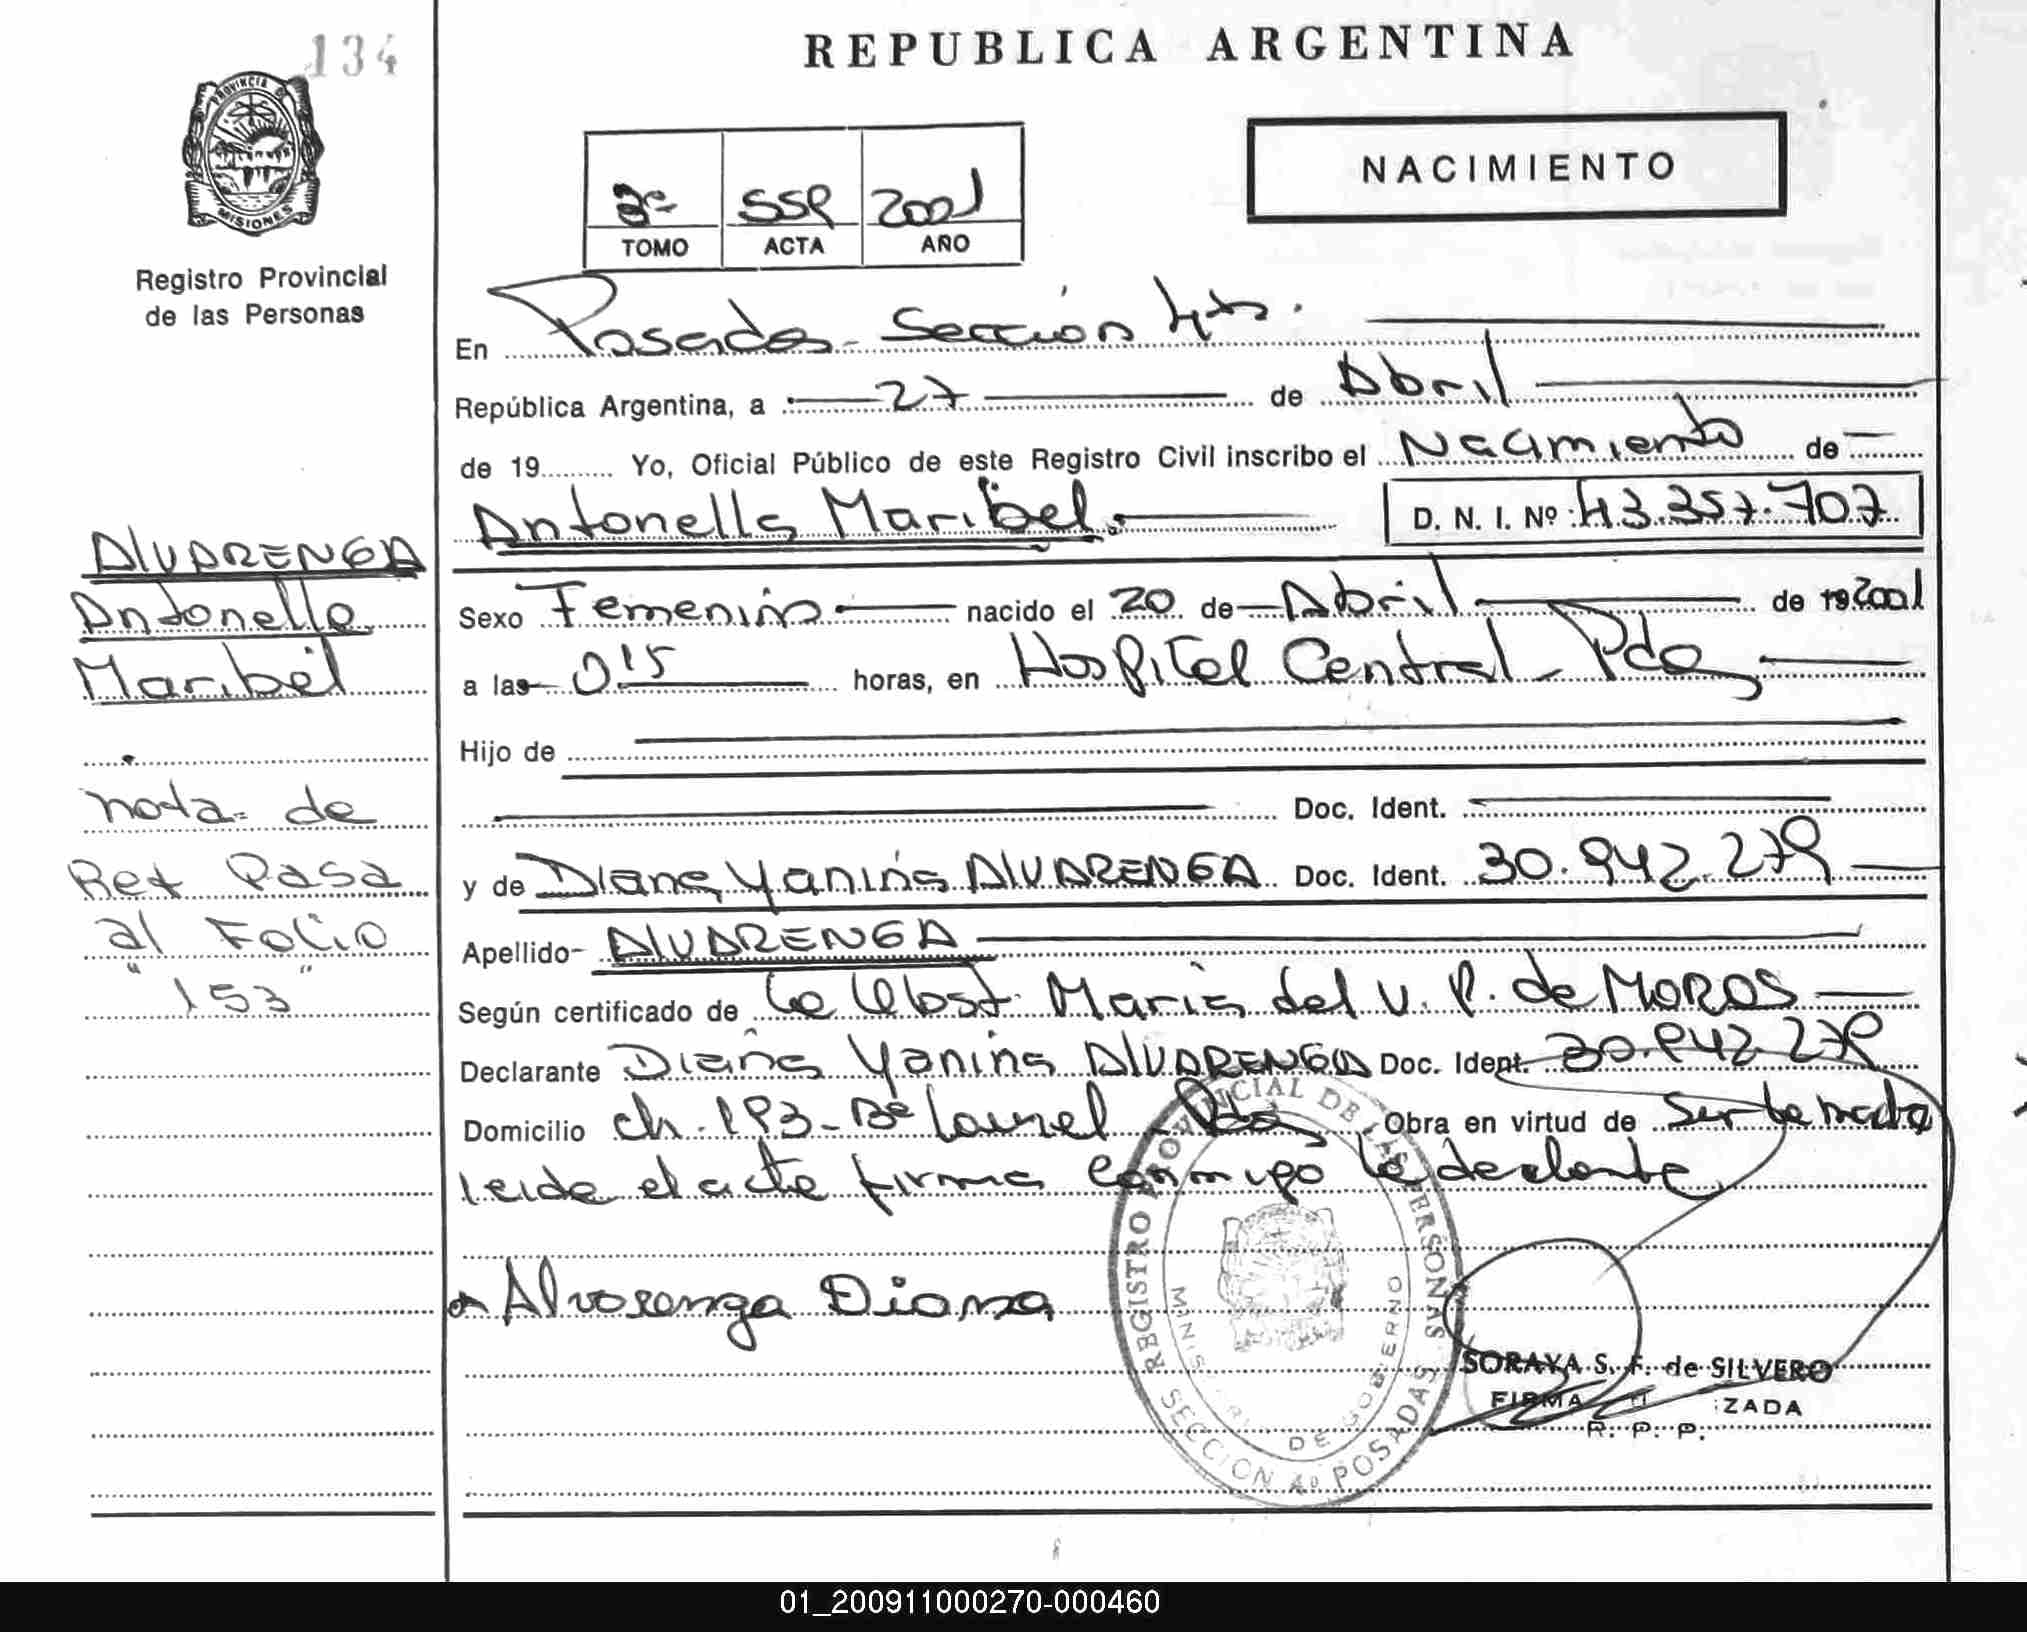 134
PROVINCIA DE
MISIONES
Registro Provincial
de las Personas
REPUBLICA ARGENTINA
NACIMIENTO
3º 559 2001
TOMO ACTA AÑO
En Posadas - Sección 4ta.
República Argentina, a 27 de Abril
de 19 Yo, Oficial Público de este Registro Civil inscribo el Nacimiento de
Antonella Maribel. D. N. I. Nº 43.357.707
Sexo Femenino nacido el 20 de Abril de 19 2001
a las 0'15 horas, en Hospital Central - Pdas
Hijo de
Doc. Ident.
y de Diana Yanina ALVARENGA Doc. Ident. 30.942.279
Apellido- ALVARENGA
Según certificado de la Obst. Maria del V. P. de MOROS
Declarante Diana Yanina ALVARENGA Doc. Ident. 30.942.279
Domicilio ch. 193 - Bº Laurel Pdas Obra en virtud de ser la madre
leida el acta firma conmigo la declarante
Alvarenga Diana
REGISTRO PROVINCIAL DE LAS PERSONAS
MINISTERIO DE GOBIERNO
SECCION 4º POSADAS
SORAYA S. F. de SILVERO
FIRMA ZADA
R. P. P.
ALVARENGA
Antonella
Maribel
nota= de
Ret Pasa
al Folio
"153"
01_200911000270-000460